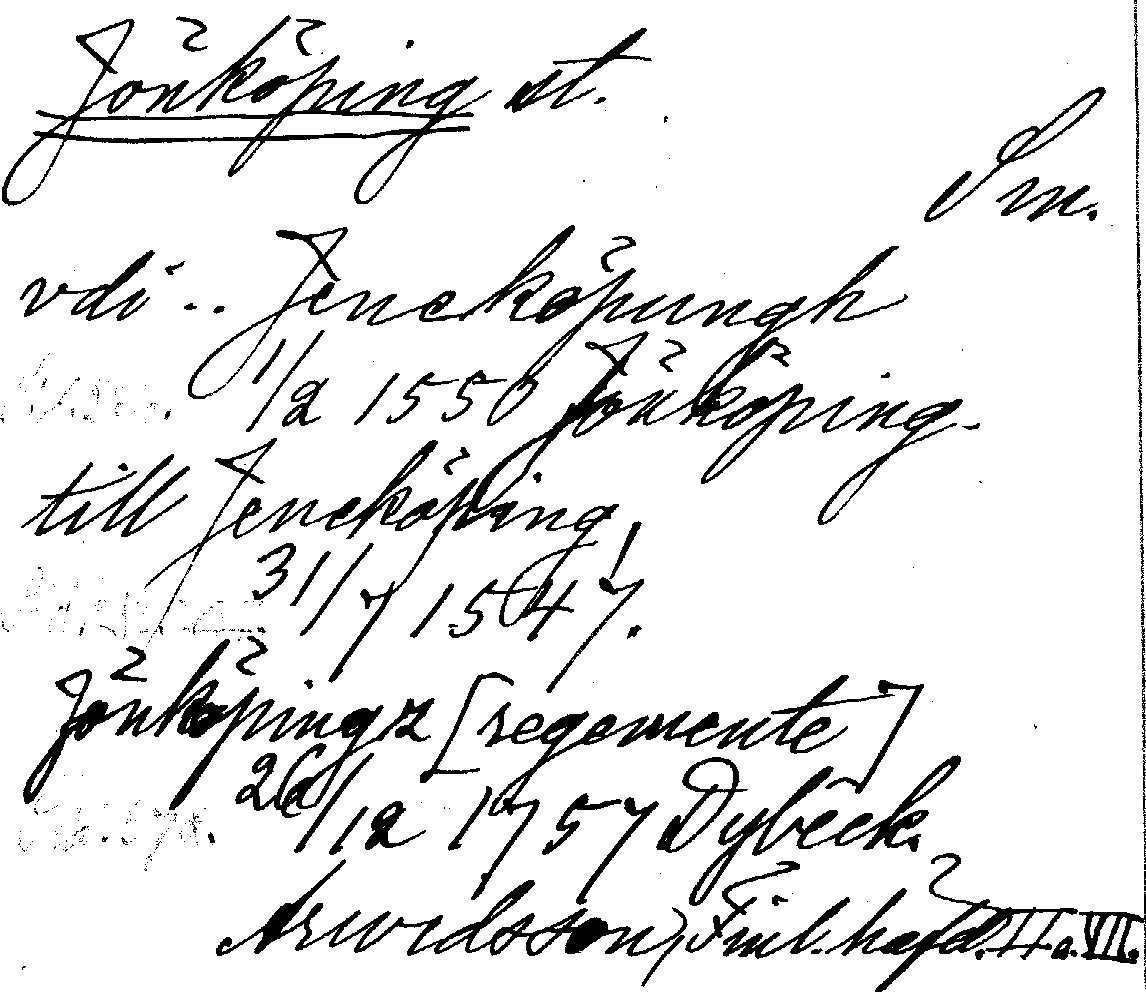 Jönköping st.
Sm.
vdi .. Jeneköpungh
1/2 1550 Jönköping.
till Jeneköping!
31/7 1547.
Jönköpingz [regemente]
26/12 1757 Dybeck.
Arwidsson, Finl. häfd. II o. VII.